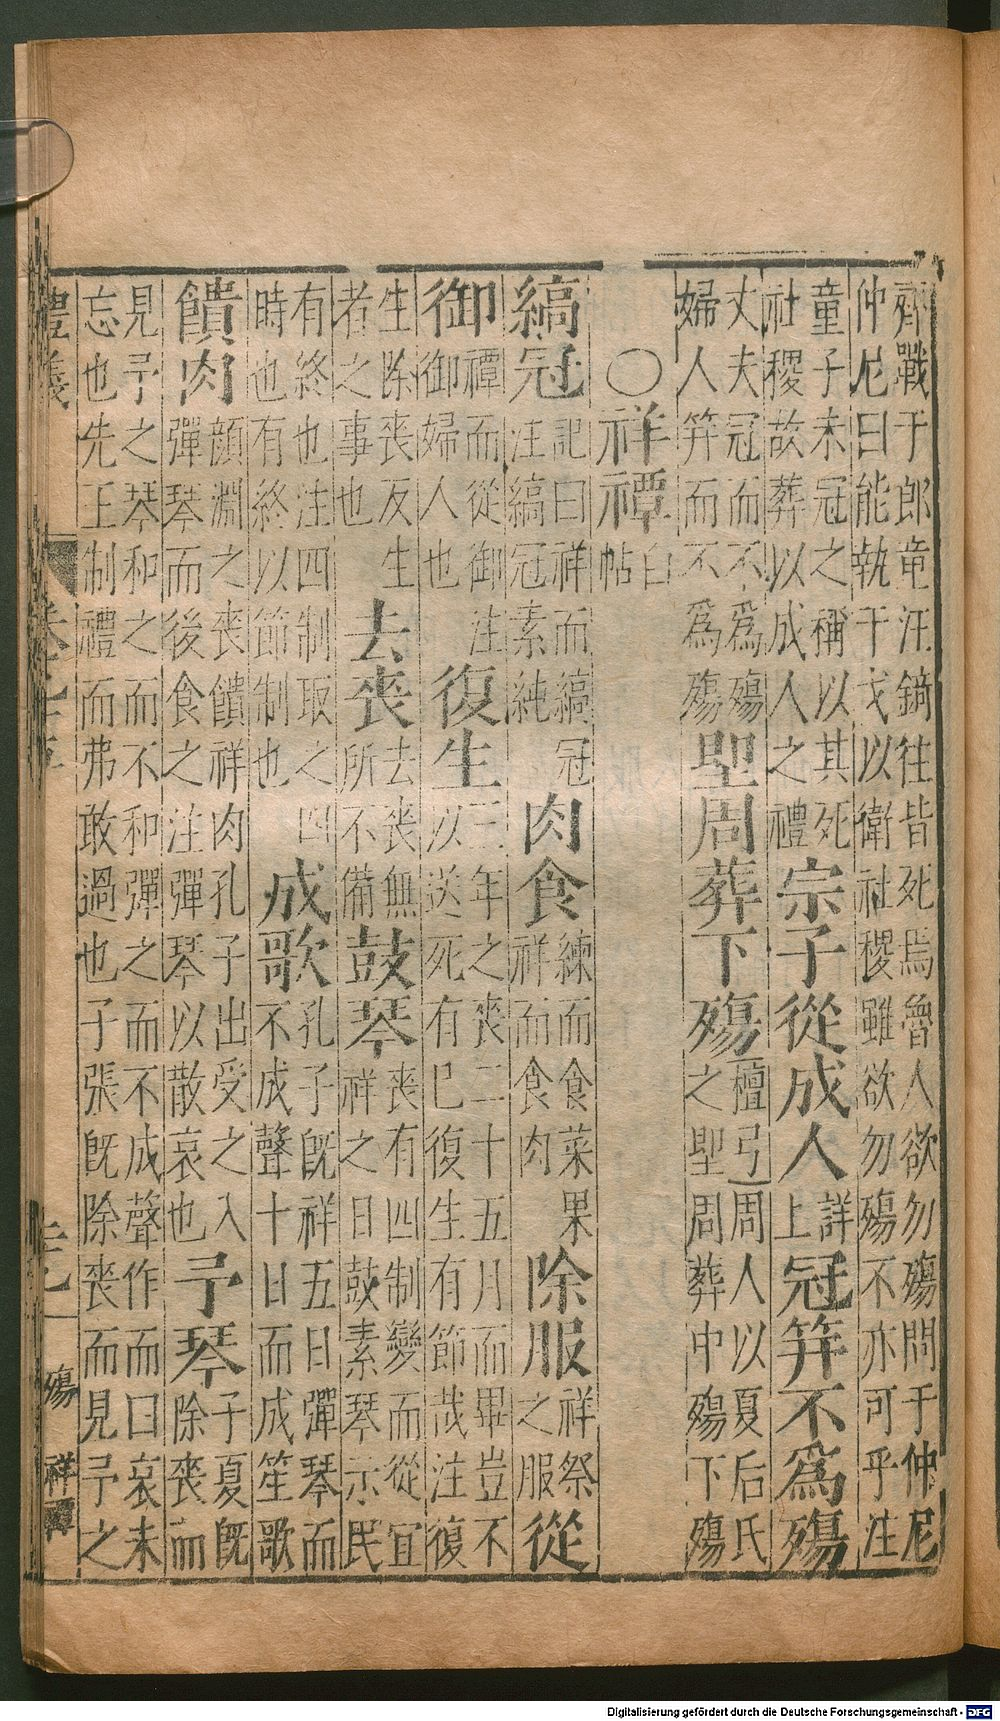 齊戰于郎童汪錡往皆死焉魯人欲勿殤問于仲尼
仲尼曰能執干戈以衛社稷雖欲勿殤不亦可乎注
童子未冠之稱以其死
社稷故葬以成人之禮
宗子從成人
詳
上
冠笄不爲殤
丈夫冠而不爲殤
婦人笄而不爲殤
堲周葬下殤
檀弓周人以夏后氏
之堲周葬中殤下殤
○祥禫
白
帖
縞冠
記曰祥而縞冠
注縞冠素純
肉食
練而食菜果
祥而食肉
除服
祥祭
之服
從
御
禫而從御注
御婦人也
復生
三年之喪二十五月而畢豈不
以送死有已復生有節哉注復
生除喪反生
者之事也
去喪
去喪無
所不備
鼓琴
喪有四制變而從宜
祥之日鼓素琴示民
有終也注四制取之四
時也有終以節制也
成歌
孔子旣祥五日彈琴而
不成聲十日而成笙歌
饋肉
顏淵之喪饋祥肉孔子出受之入
彈琴而後食之注彈琴以散哀也
予琴
子夏旣
除喪而
見予之琴和之而不和彈之而不成聲作而曰哀未
忘也先王制禮而弗敢過也子張旣除喪而見予之
殤 祥禫
Digitalisierung gefördert durch die Deutsche Forschungsgemeinschaft - DFG